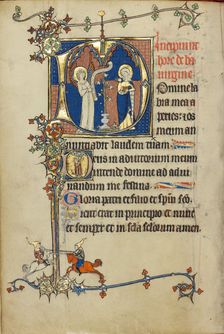 Incipiunt
hore de ba
uirgine
Domine la
bra mea a
peries: ⁊ os
meum an
nunciabit laudem tuam
Deus in adiutorium meum
intende domine ad adiu
uandum me festina
Gloria patri et filio et spū sco
Sicut erat in principio et nūc
et semper et in scła scłorum amen.